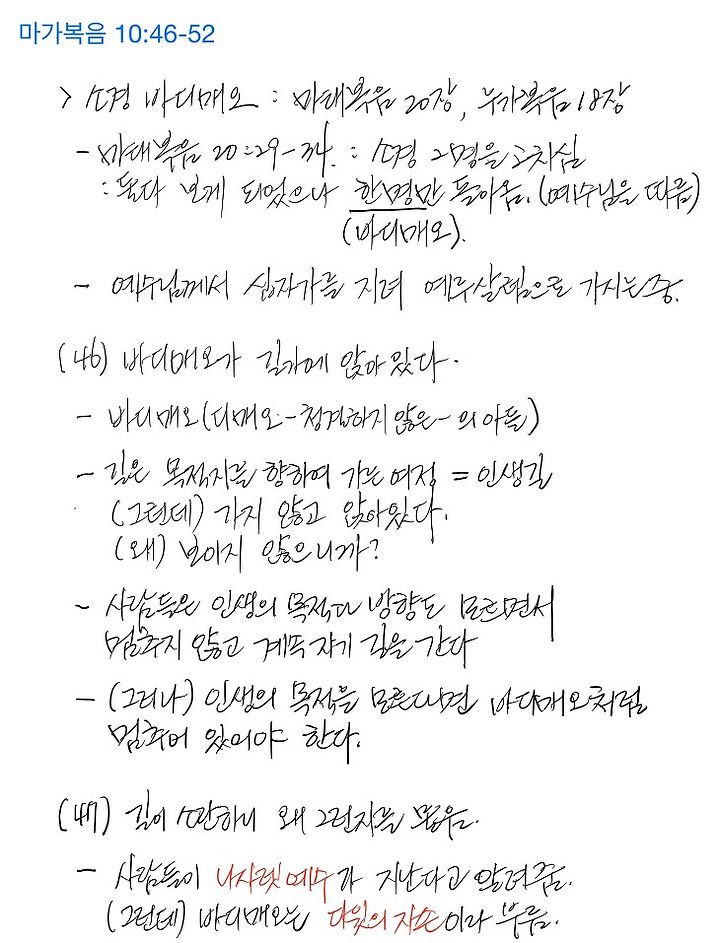 마가복음 10:46-52
> 소경 바디매오 : 마태복음 20장, 누가복음 18장
- 마태복음 20:29-34. : 소경 2명을 고치심
: 둘다 보게 되었으나 한명만 돌아옴. (예수님을 따름)
(바디매오).
- 예수님께서 십자가를 지려 예루살렘으로 가시는 중.
(46) 바디매오가 길가에 앉아있다.
- 바디매오(디매오-청결하지 않은-의 아들)
- 길은 목적지를 향하여 가는 여정 = 인생길
(그런데) 가지 않고 앉아있다.
(왜) 보이지 않으니까?
- 사람들은 인생의 목적과 방향도 모르면서
멈추지 않고 계속 자기 길을 간다
- (그러나) 인생의 목적을 모른다면 바디매오처럼
멈추어 있어야 한다.
(47) 길이 소란하니 왜 그런지를 물음.
- 사람들이 나사렛 예수가 지난다고 알려줌.
(그런데) 바디매오는 다윗의 자손이라 부름.